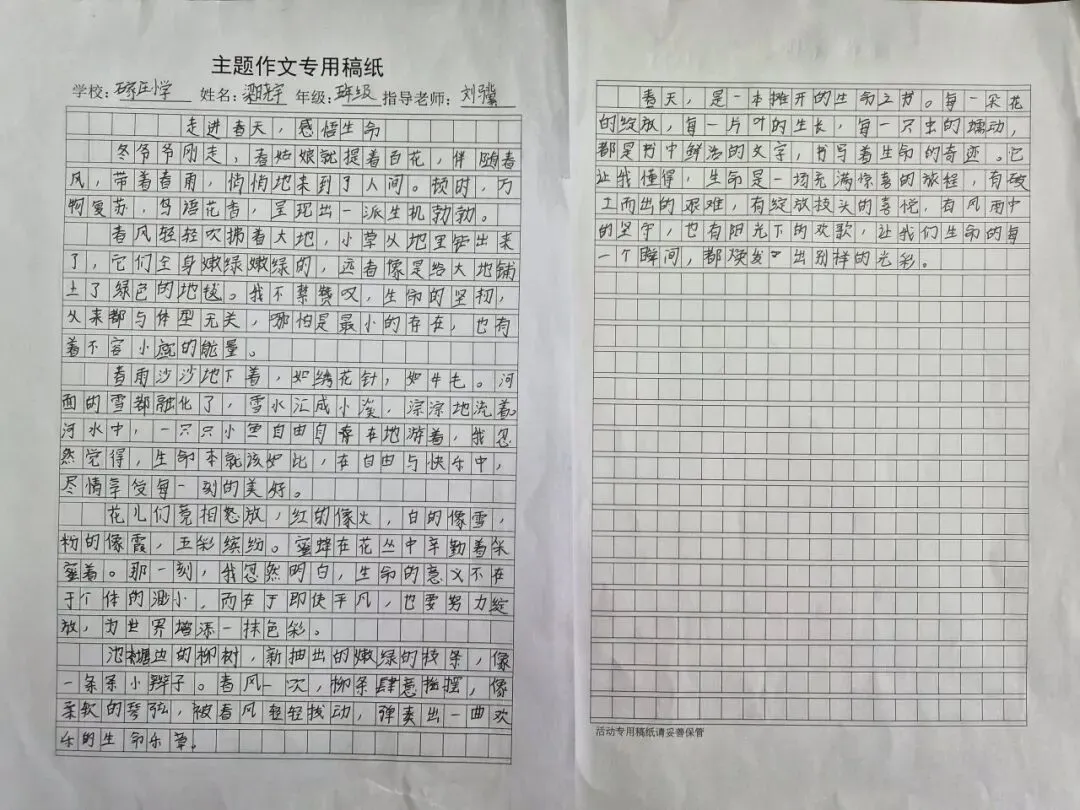 主题作文专用稿纸
学校： 小学 姓名： 年级：五年级 指导老师：刘
走进春天，感悟生命
冬爷爷刚走，春姑娘就提着百花，伴随春
风，带着春雨，悄悄地来到了人间。顿时，万
物复苏，鸟语花香，呈现出一派生机勃勃。
春风轻轻吹拂着大地，小草从地里钻出来
了，它们全身嫩绿嫩绿的，远看像是给大地铺
上了绿色的地毯。我不禁赞叹，生命的坚韧，
从来都与体型无关，哪怕是最小的存在，也有
着不容小觑的能量。
春雨沙沙地下着，如绣花针，如牛毛。河
面的雪都融化了，雪水汇成小溪，淙淙地流着。
河水中，一只只小鱼自由自在地游着，我忽
然觉得，生命本就该如比，在自由与快乐中，
尽情享受每一刻的美好。
花儿们竞相怒放，红的像火，白的像雪，
粉的像霞，五彩缤纷。蜜蜂在花丛中辛勤着采
蜜着。那一刻，我忽然明白，生命的意义不在
于个体的渺小，而在于即使平凡，也要努力绽
放，为世界增添一抹色彩。
池塘边的柳树，新抽出的嫩绿的枝条，像
一条条小辫子。春风一吹，柳条肆意摇摆，像
柔软的琴弦，被春风轻轻拨动，弹奏出一曲欢
乐的生命乐章。
春天，是一本摊开的生命之书。每一朵花
的绽放，每一片叶的生长，每一只虫的蠕动，
都是书中鲜活的文字，书写着生命的奇迹。它
让我懂得，生命是一场充满惊喜的旅程，有破
土而出的艰难，有绽放枝头的喜悦，有风雨中
的坚守，也有阳光下的欢歌，让我们生命的每
一个瞬间，都焕发出别样的光彩。
活动专用稿纸请妥善保管